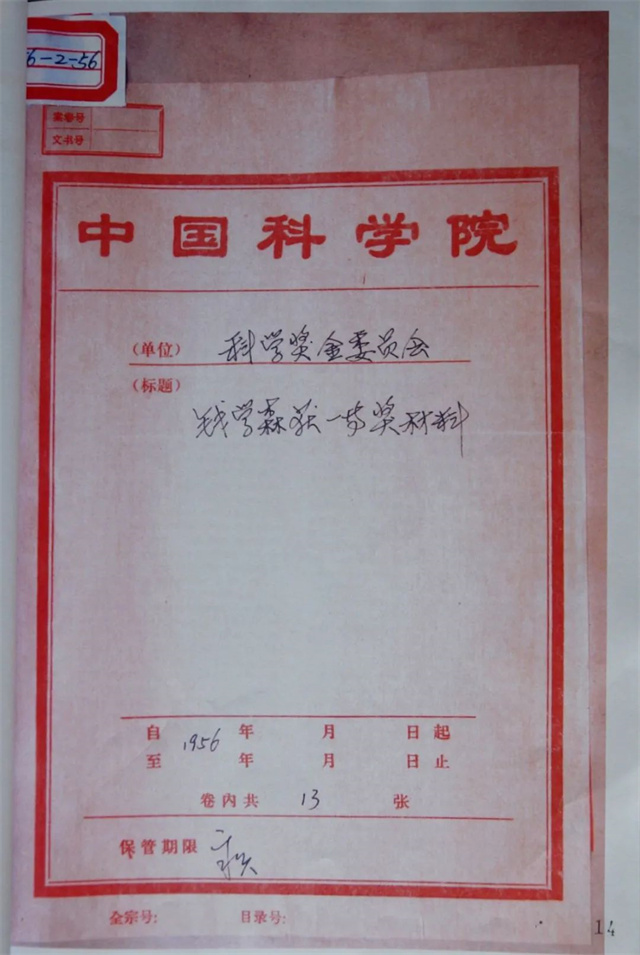 6-2-56
案卷号
文书号
中国科学院
(单位) 科学奖金委员会
(标题)
钱学森获一等奖材料
自 1956 年 月 日起
至 年 月 日止
卷内共 13 张
保管期限 永久
全宗号: 目录号:
14